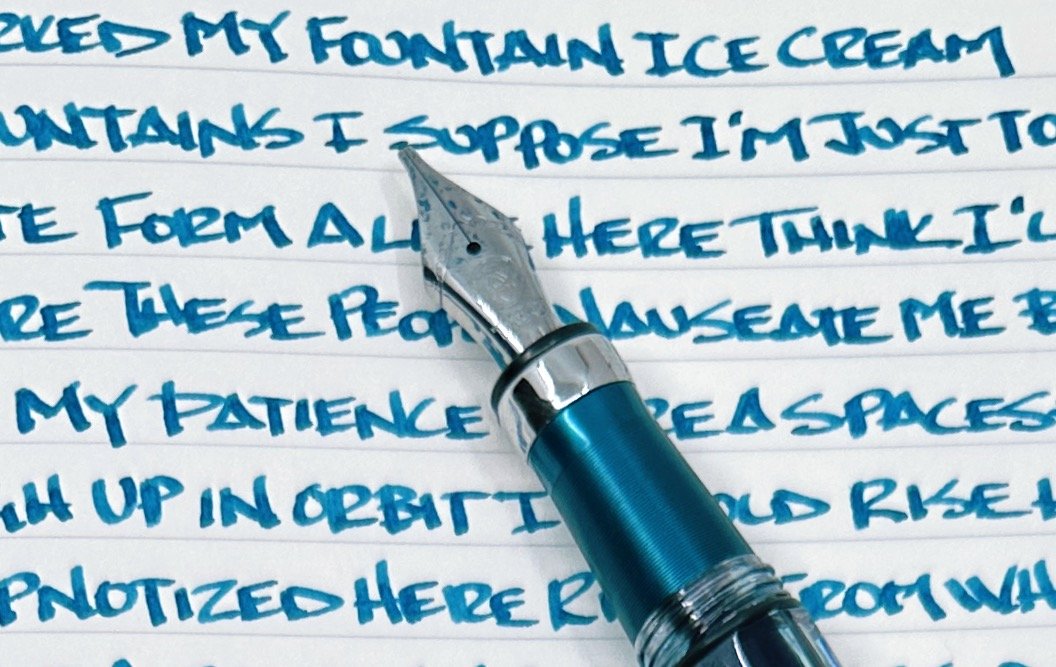 RKED MY FOUNTAIN ICE CREAM
UNTAINS I SUPPOSE I'M JUST TO
TE FORM ALL HERE THINK I'L
RE THESE PEOP NAUSEATE ME B
MY PATIENCE RE A SPACES
H UP IN ORBIT I OLD RISE
PNOTIZED HERE R FROM WH